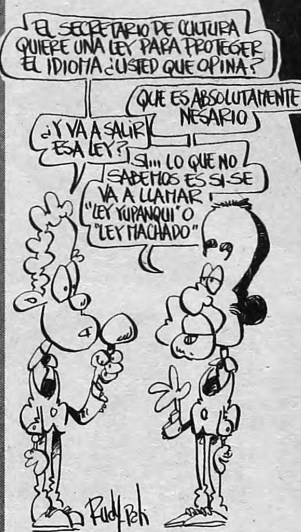 EL SECRETARIO DE CULTURA
QUIERE UNA LEY PARA PROTEGER
EL IDIOMA ¿USTED QUE OPINA?
QUE ES ABSOLUTAMENTE
NESARIO
¿Y VA A SALIR
ESA LEY?
SI... LO QUE NO
SABEMOS ES SI SE
VA A LLAMAR
"LEY YUPANQUI" O
"LEY MACHADO"
Rudy Pati